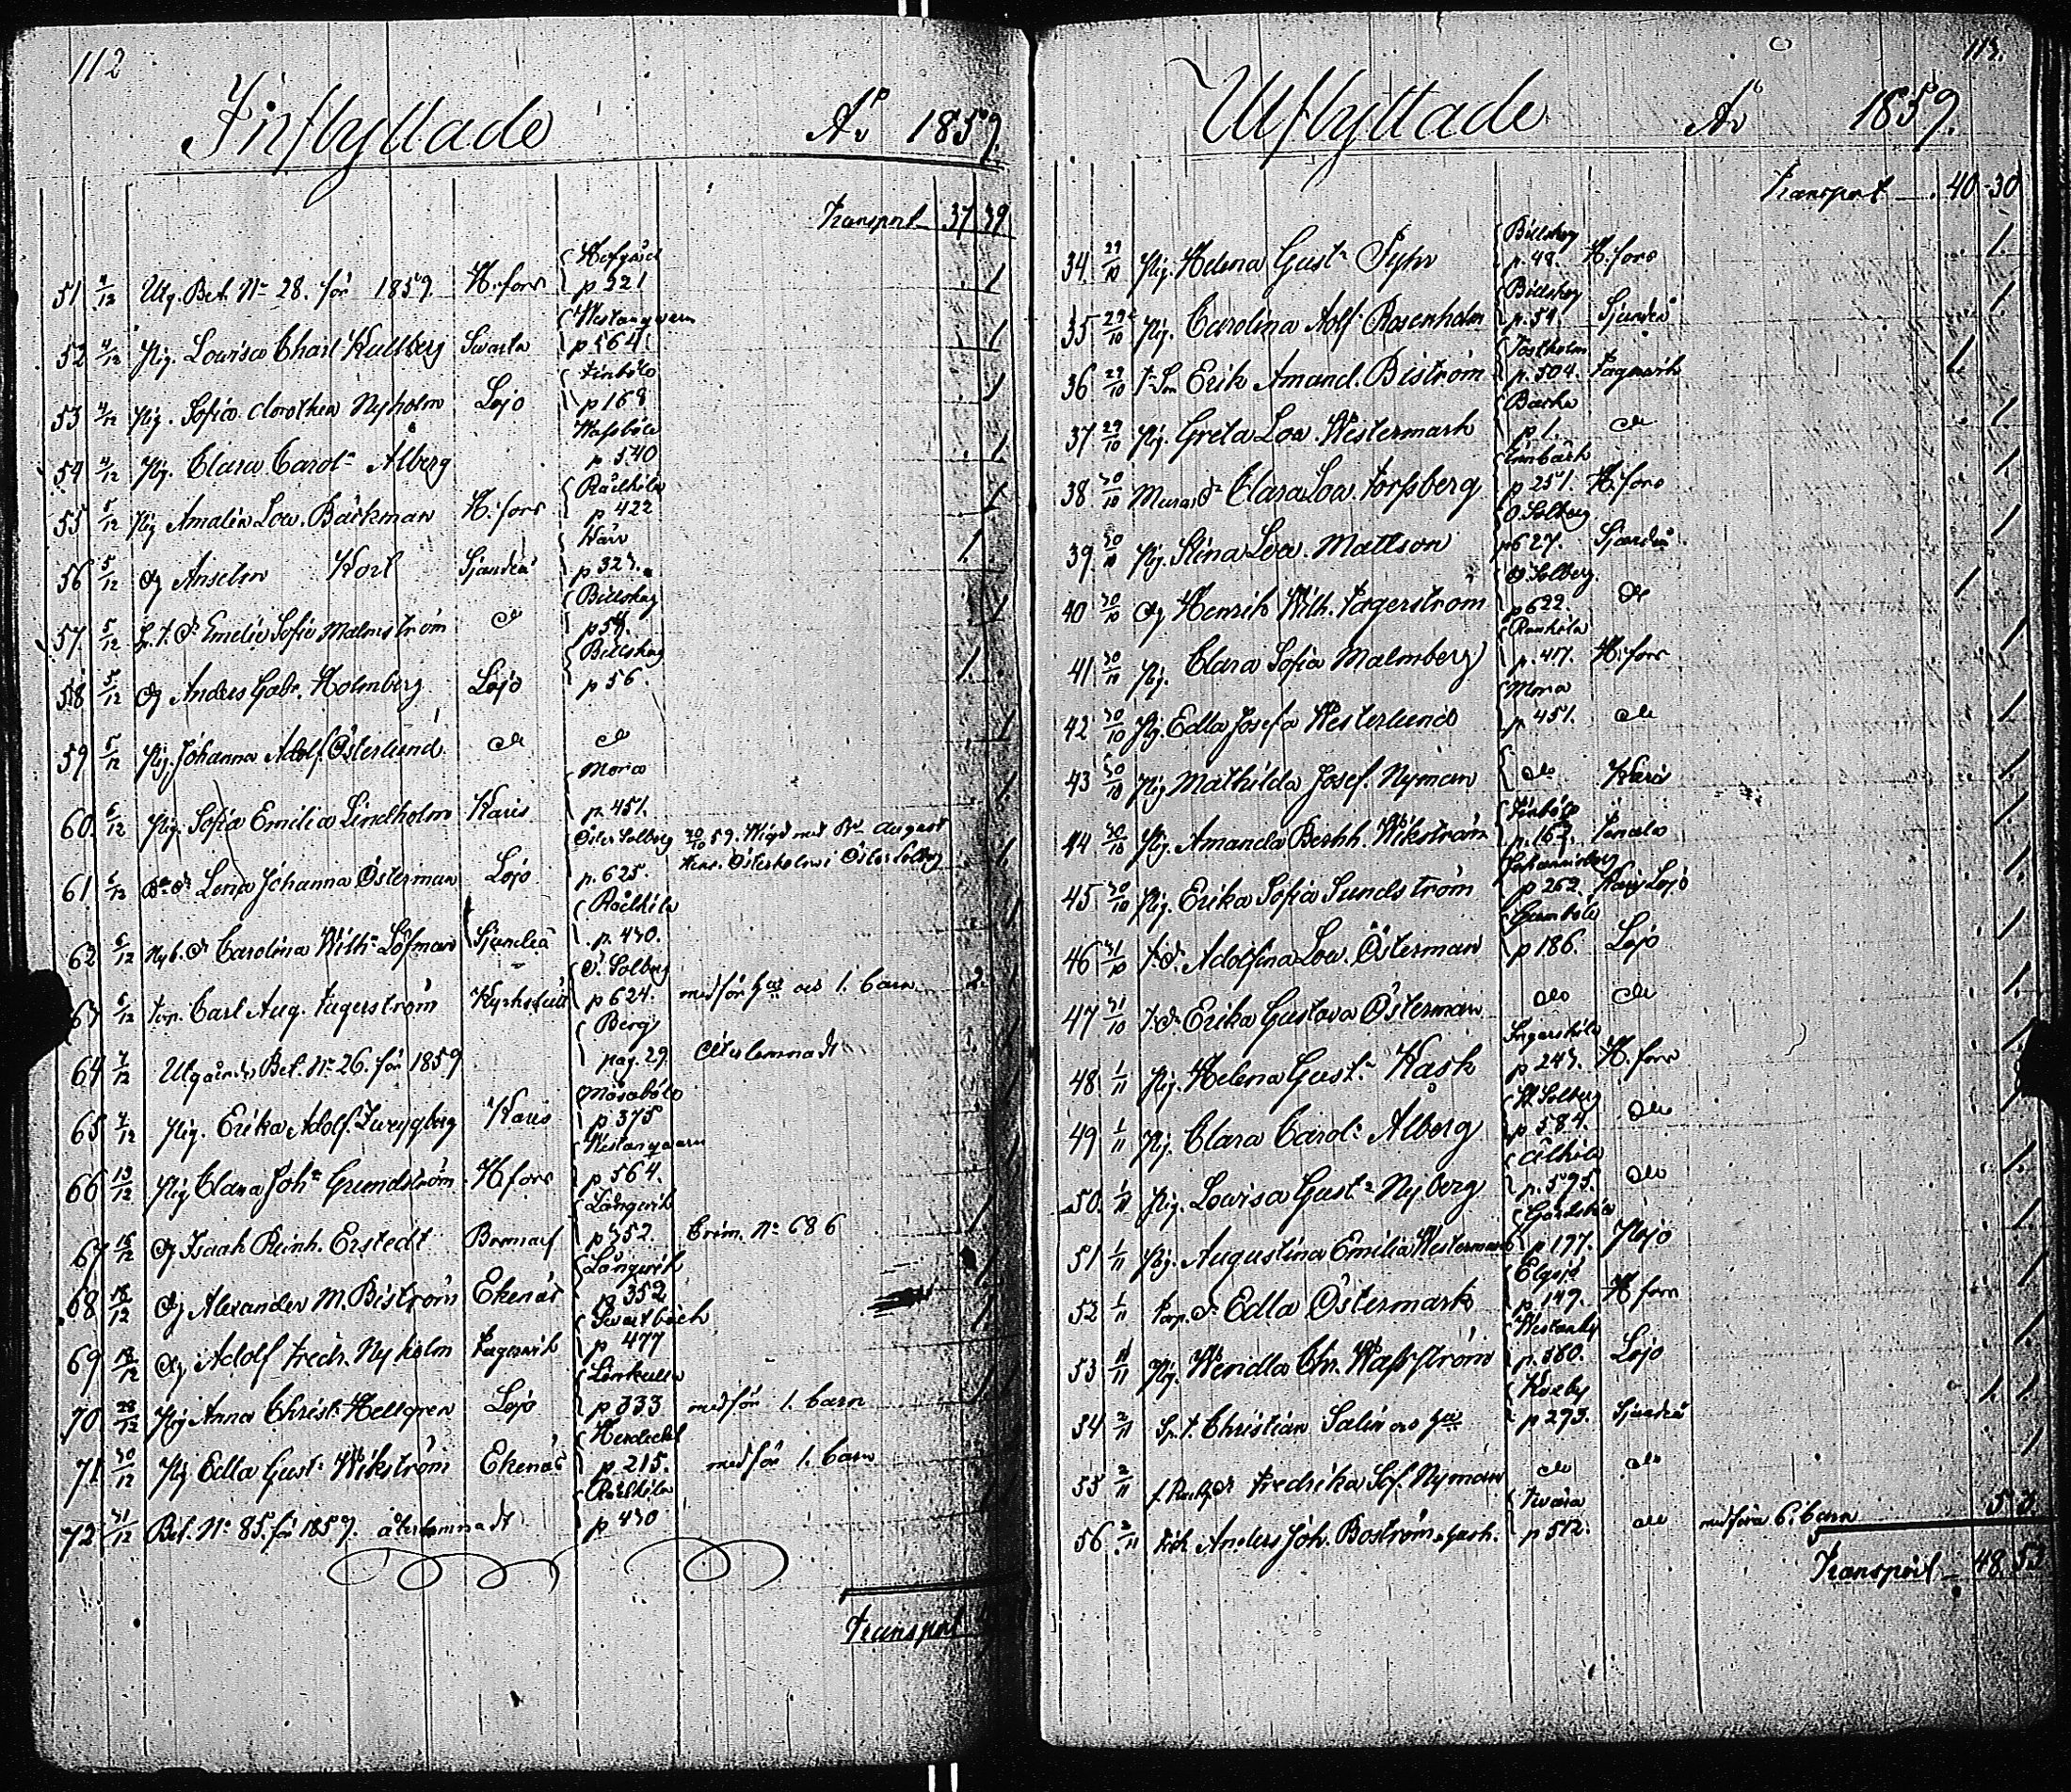 112
Inflyttade Aº 1859.
Transport 37 39
51 4/12 Utg. Bet. Nº 28. för 1859. H:fors p 321 1
52 4/12 Pig. Lowisa Charl Kullberg Svarta Westanqvarn p 564. 1
53 4/12 Pig. Sofia Dorothea Nyholm Lojo Finbole p 168 1
54 4/12 Pig. Clara Carolª Ålberg p 540 1
55 5/12 Pig Amalia Low. Bäckman H:fors Rådkila p. 422 1
56 5/12 Dg Anselm Sjundeå p 323. 1.
57 5/12 Emelie Sofie Malmström do Billskog p 54. 1
58 5/12 Dg Anders Gabr. Holmberg Lojo Billskog p 56. 1.
59 5/12 Pig. Johanna Adolf. Österlund do do 1
60. 6/12 Pig. Sofia Emilia Lindholm Karis Mora p. 451. 1
61 6/12 Lena Johanna Österman Lojo Öster Solberg p. 625. 30/10 59. Wigd med August Öster Solberg 1
62 6/12 Nyb. D. Carolina Wilhª Löfman Sjundeå Rådkila p. 430. 1
63 6/12 Torp. Carl Aug. Fagerström Kyrkslätt Ö. Solberg p 624. medför 1. barn 2. 1
64 7/12 Utgående Bet. Nº 26. för 1859 Berg pag. 29 Återlemnadt
65 7/12 Pig. Erika Adolf. Zweygberg Karis Måsabole p. 375
66 13/12 Pig Clara Johª Grundström H:fors Westanqvarn p. 564. 1
67 15/12 Dg Isaak Reinh. Erstedt Bromarf Långvik p 352. Crim. Nº 686 1
68 18/12 Dg Alexander M. Biström Ekenäs Långvik p. 352 1
69 18/12 Dg Adolf Fredr. Nyholm Fagervik Svartbäck p 477 1
70. 28/12 Pig Anna Christª Hellgren Lojo Linkulla p 333 medför 1. barn 1 1
71. 30/12 Pig Edla Gustª Wikström Ekenäs p. 215. medför 1. barn
72 31/12 Bet. Nº 85. för 1859. återlemnadt Rådkila p 430
Transport
113.
Utflyttade Aº 1859.
Transport 40 30
34 29/10 Pig. Helena Gustª Fyhr Billskog p. 48. H:fors 1.
35 29/10 Pig. Carolina Adolf. Rosenholm Billskog p. 54. Sjundeå 1
36 29/10 Erik Amand. Biström p. 504. Fagervik 1.
37 29/10 Pig. Greta Lowª Westermark p 1. do 1.
38 30/10 Clara Lowª Forssberg p 251. H:fors 1.
39 30/10 Pig. Stina Lowª Mattson Ö. Solberg p 627. Sjundeå 1
40 30/10 Dg Henrik Wilh. Fagerström Ö Solberg p 622. do 1
41 30/10 Pig. Clara Sofia Malmberg p. 417. H:fors 1
42 30/10 Pig. Edla Josefa Westerlund Mora p. 451. do 1
43 30/10 Pig Mathilda Josef. Nyman do 1.
44 30/10 Pig. Amanda Wikström Finbole p. 163. 1
45 30/10 Pig. Erika Sofia Sundström Johannisberg p 262. Karis Lojo 1.
46 31/10 T. D. Adolfina Low. Österman Gumbole p 186. Lojo 1
47 31/10 T. D. Erika Gustava Österman do do 1.
48 1/11 Pig. Helena Gustª Kask Ingarskila p 243. H:fors 1
49 1/11 Pig. Clara Carolª Ålberg W. Solberg p 584. do 1.
50. 1/11 Pig. Lowisa Gustª Nyberg p. 595. do 1.
51 1/11 Pig. Augustina Emilia Westermark p. 177. Lojo 1.
52 1/11 Torp. D. Edla Östermark p. 149. H:fors
53 1/11 Pig. Wendla Chr. Wassström Westanby p. 580. Lojo 1.
54 2/11 Christian Salin p 293. Sjundeå 1. 1
55 2/11 Fredrika Sof. Nyman do do 1
56 2/11 Anders Joh. Boström p 512. do medföra 6. barn 5 3
Transport 48 52